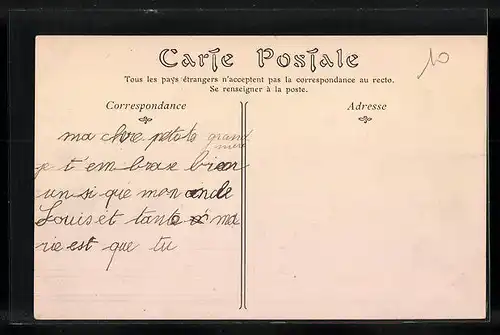 Carte Postale
10
Tous les pays étrangers n'acceptent pas la correspondance au recto.
Se renseigner à la poste.
Correspondance
Adresse
ma chre petate grand
mere
je t'em brase bien
un si que mon oncle
Louis et tante ma
rie est que tu